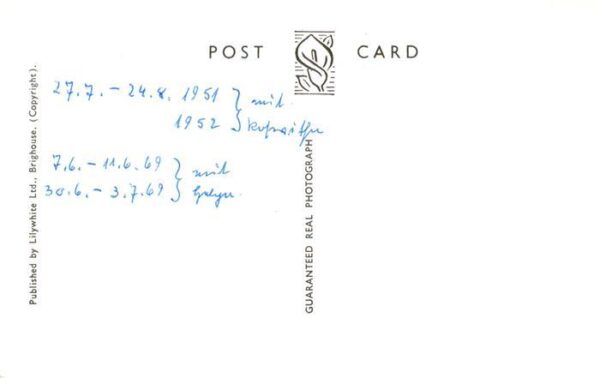 POST CARD
27.7. – 24.8. 1951 } mit
1952
7.6. – 11.6.69 } mit
30.6. – 3.7.69
Published by Lilywhite Ltd., Brighouse. (Copyright).
GUARANTEED REAL PHOTOGRAPH